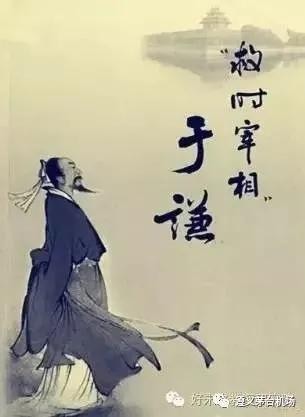 "救时宰相"
于谦
遵义茅台机场